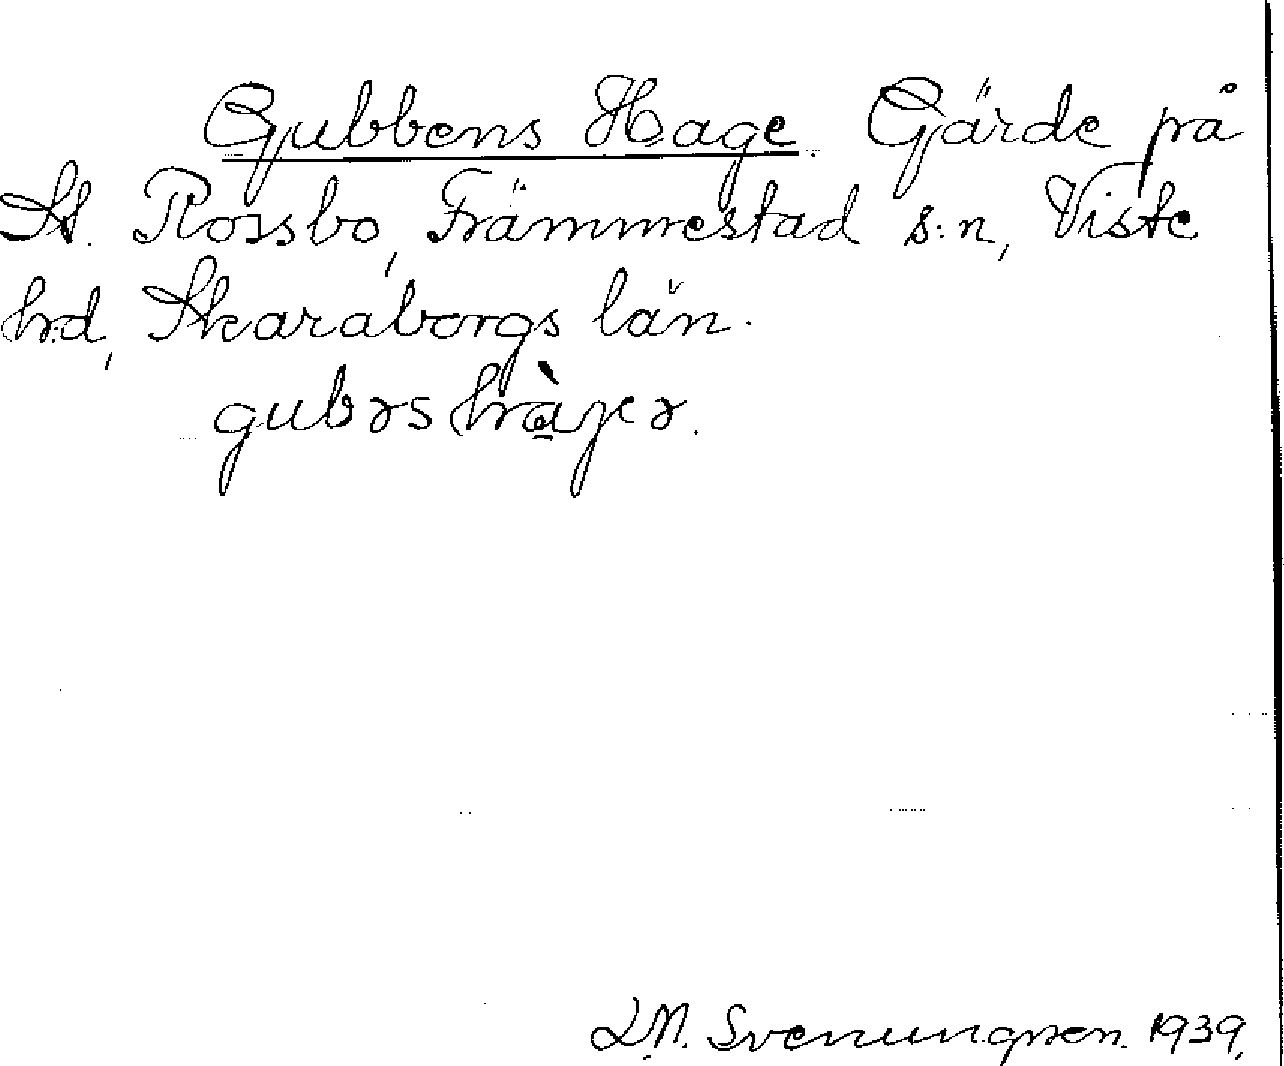 Gubbens Hage. Gärde på
St. Rossbo, Främmestad s:n, Viste
hrd, Skaraborgs län.
gubəs
L.M. Svenungsson. 1939.